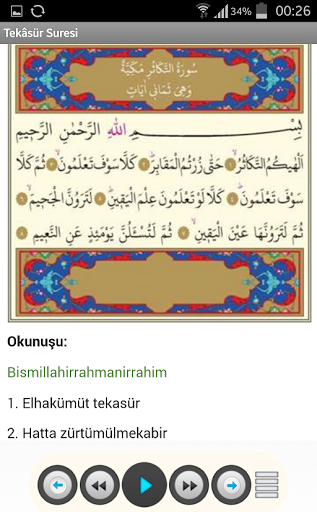 34% 00:26
Tekâsür Suresi
سُورَةُ التَّكَاثُرِ مَكِّيَّةٌ
وَهِيَ ثَمَانِي اٰيَاتٍ
بِسْمِ اللّٰهِ الرَّحْمٰنِ الرَّحِيمِ
اَلْهٰيكُمُ التَّكَاثُرُۙ ﴿١﴾ حَتّٰى زُرْتُمُ الْمَقَابِرَۜ ﴿٢﴾ كَلَّا سَوْفَ تَعْلَمُونَۙ ﴿٣﴾ ثُمَّ كَلَّا
سَوْفَ تَعْلَمُونَۜ ﴿٤﴾ كَلَّا لَوْ تَعْلَمُونَ عِلْمَ الْيَقِينِۜ ﴿٥﴾ لَتَرَوُنَّ الْجَحِيمَۙ ﴿٦﴾
ثُمَّ لَتَرَوُنَّهَا عَيْنَ الْيَقِينِۙ ﴿٧﴾ ثُمَّ لَتُسْـَٔلُنَّ يَوْمَئِذٍ عَنِ النَّعِيمِ ﴿٨﴾
Okunuşu:
Bismillahirrahmanirrahim
1. Elhakümüt tekasür
2. Hatta zürtümülmekabir